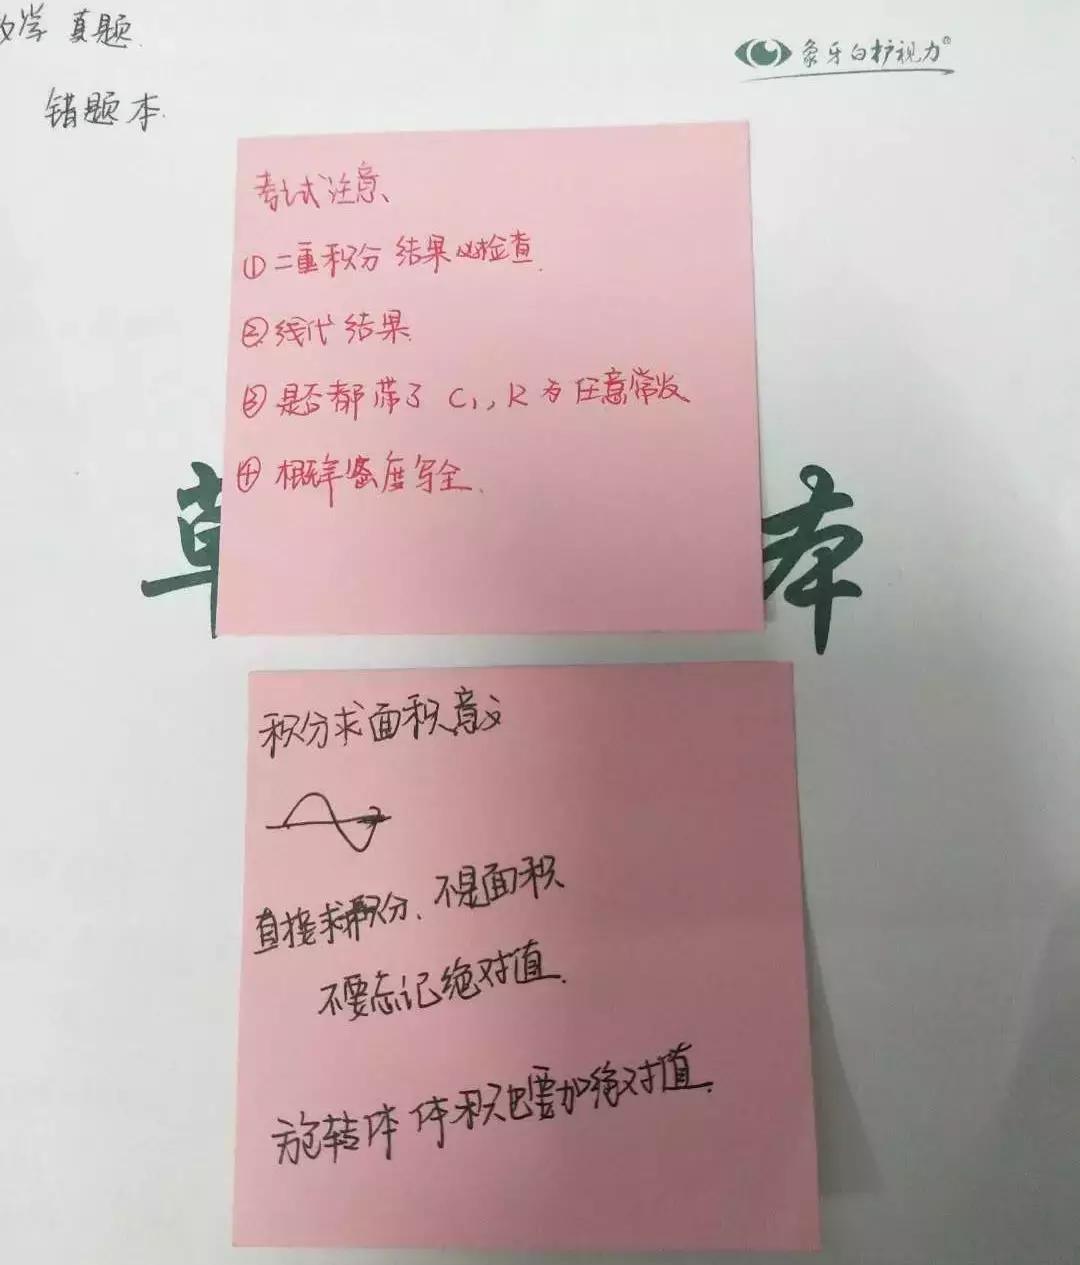 数学 真题.
象牙白护视力®
错题本.
考试注意、
① 二重积分 结果必检查.
② 线代 结果.
③ 是否都带了 C₁, k 为任意常数
④ 概率密度写全.
草 本
积分求面积意义
直接求积分、不是面积
不要忘记绝对值.
旋转体 体积也要加绝对值.